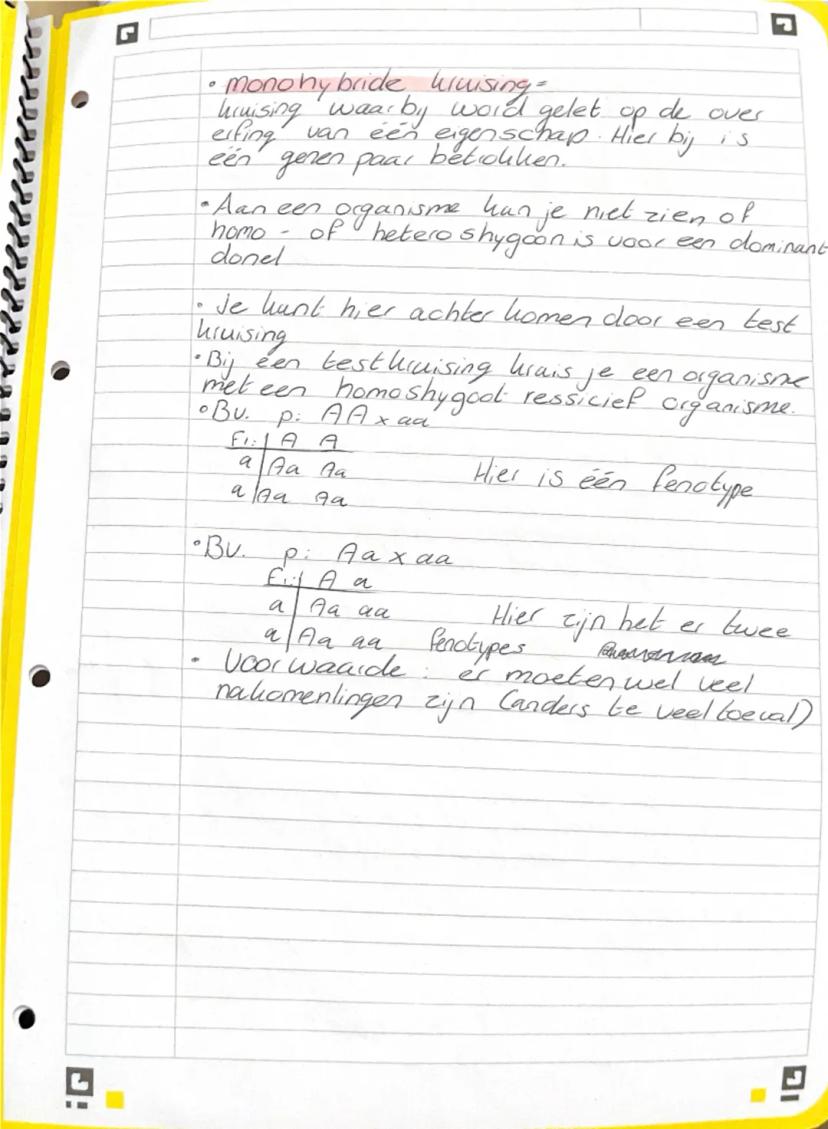 • monohybride kruising =
kruising waarbij word gelet op de over
erfing van één eigenschap. Hier bij is
één genen paar betrokken.
• Aan een organisme kan je niet zien of
homo - of heteroshygoon is voor een dominant
donel
• Je kunt hier achter komen door een test
kruising
• Bij een testkruising krais je een organisme
met een homoshygoot ressicief organisme.
• Bv. p: AA x aa
F1: A A
a Aa Aa
Hier is één fenotype
a Aa Aa
• Bv. p: Aa x aa
F1: A a
a Aa aa Hier zijn het er twee
a Aa aa fenotypes
• Voorwaarde: er moeten wel veel
nakomenlingen zijn (anders te veel toeval)